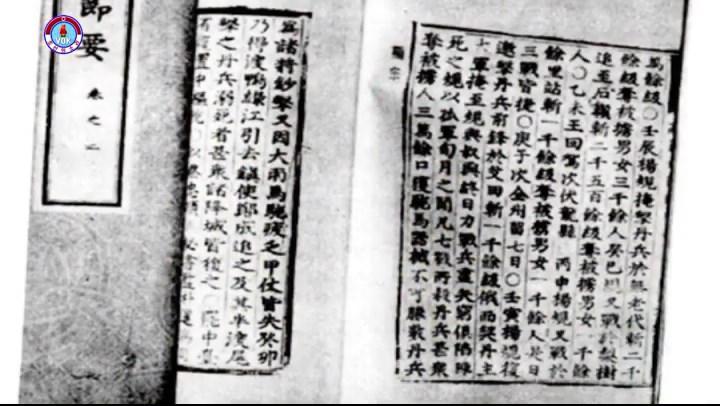 VOK
萬餘級○壬辰楊規掩擊丹兵於無老代斬二千
餘級奪被擄男女三千餘人癸巳規又戰於梨樹
追至石嶺斬二千五百餘級奪被擄男女一千餘
人○乙未王回駕次伏龍縣 丙申楊規又戰於
餘里站斬一千餘級奪被擄男女一千餘人是日
三戰皆捷○庚子次金州留七日○壬寅楊規復
邀擊丹兵前鋒於艾田斬一千餘級俄而契丹主
大軍掩至規與叔興終日力戰兵盡矢窮俱陷陣
死之規以孤軍旬月之間凡七戰所殺丹兵甚衆
奪被擄人三萬餘口獲駝馬器械不可勝數丹兵
顯宗
爲諸將鈔擊又因大雨馬駝疲乏甲仗皆失癸卯
乃得渡鴨綠江引去鎭使鄭成追之及其半渡尾
擊之丹兵溺死者甚衆諸降城皆復之○罷中臺
節要
卷之二